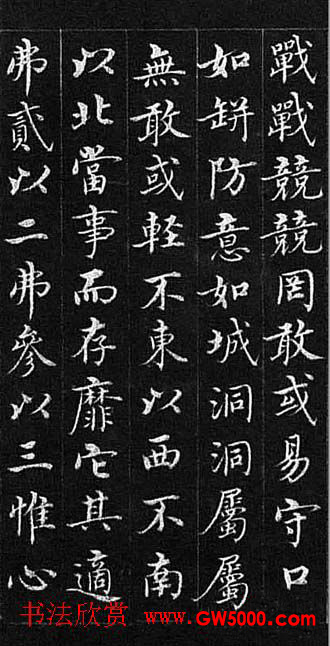 戰戰競競罔敢或易守口
如缾防意如城洞洞屬屬
無敢或輕不東以西不南
以北當事而存靡它其適
弗貳以二弗參以三惟心
书法欣赏 www.GW5000.com